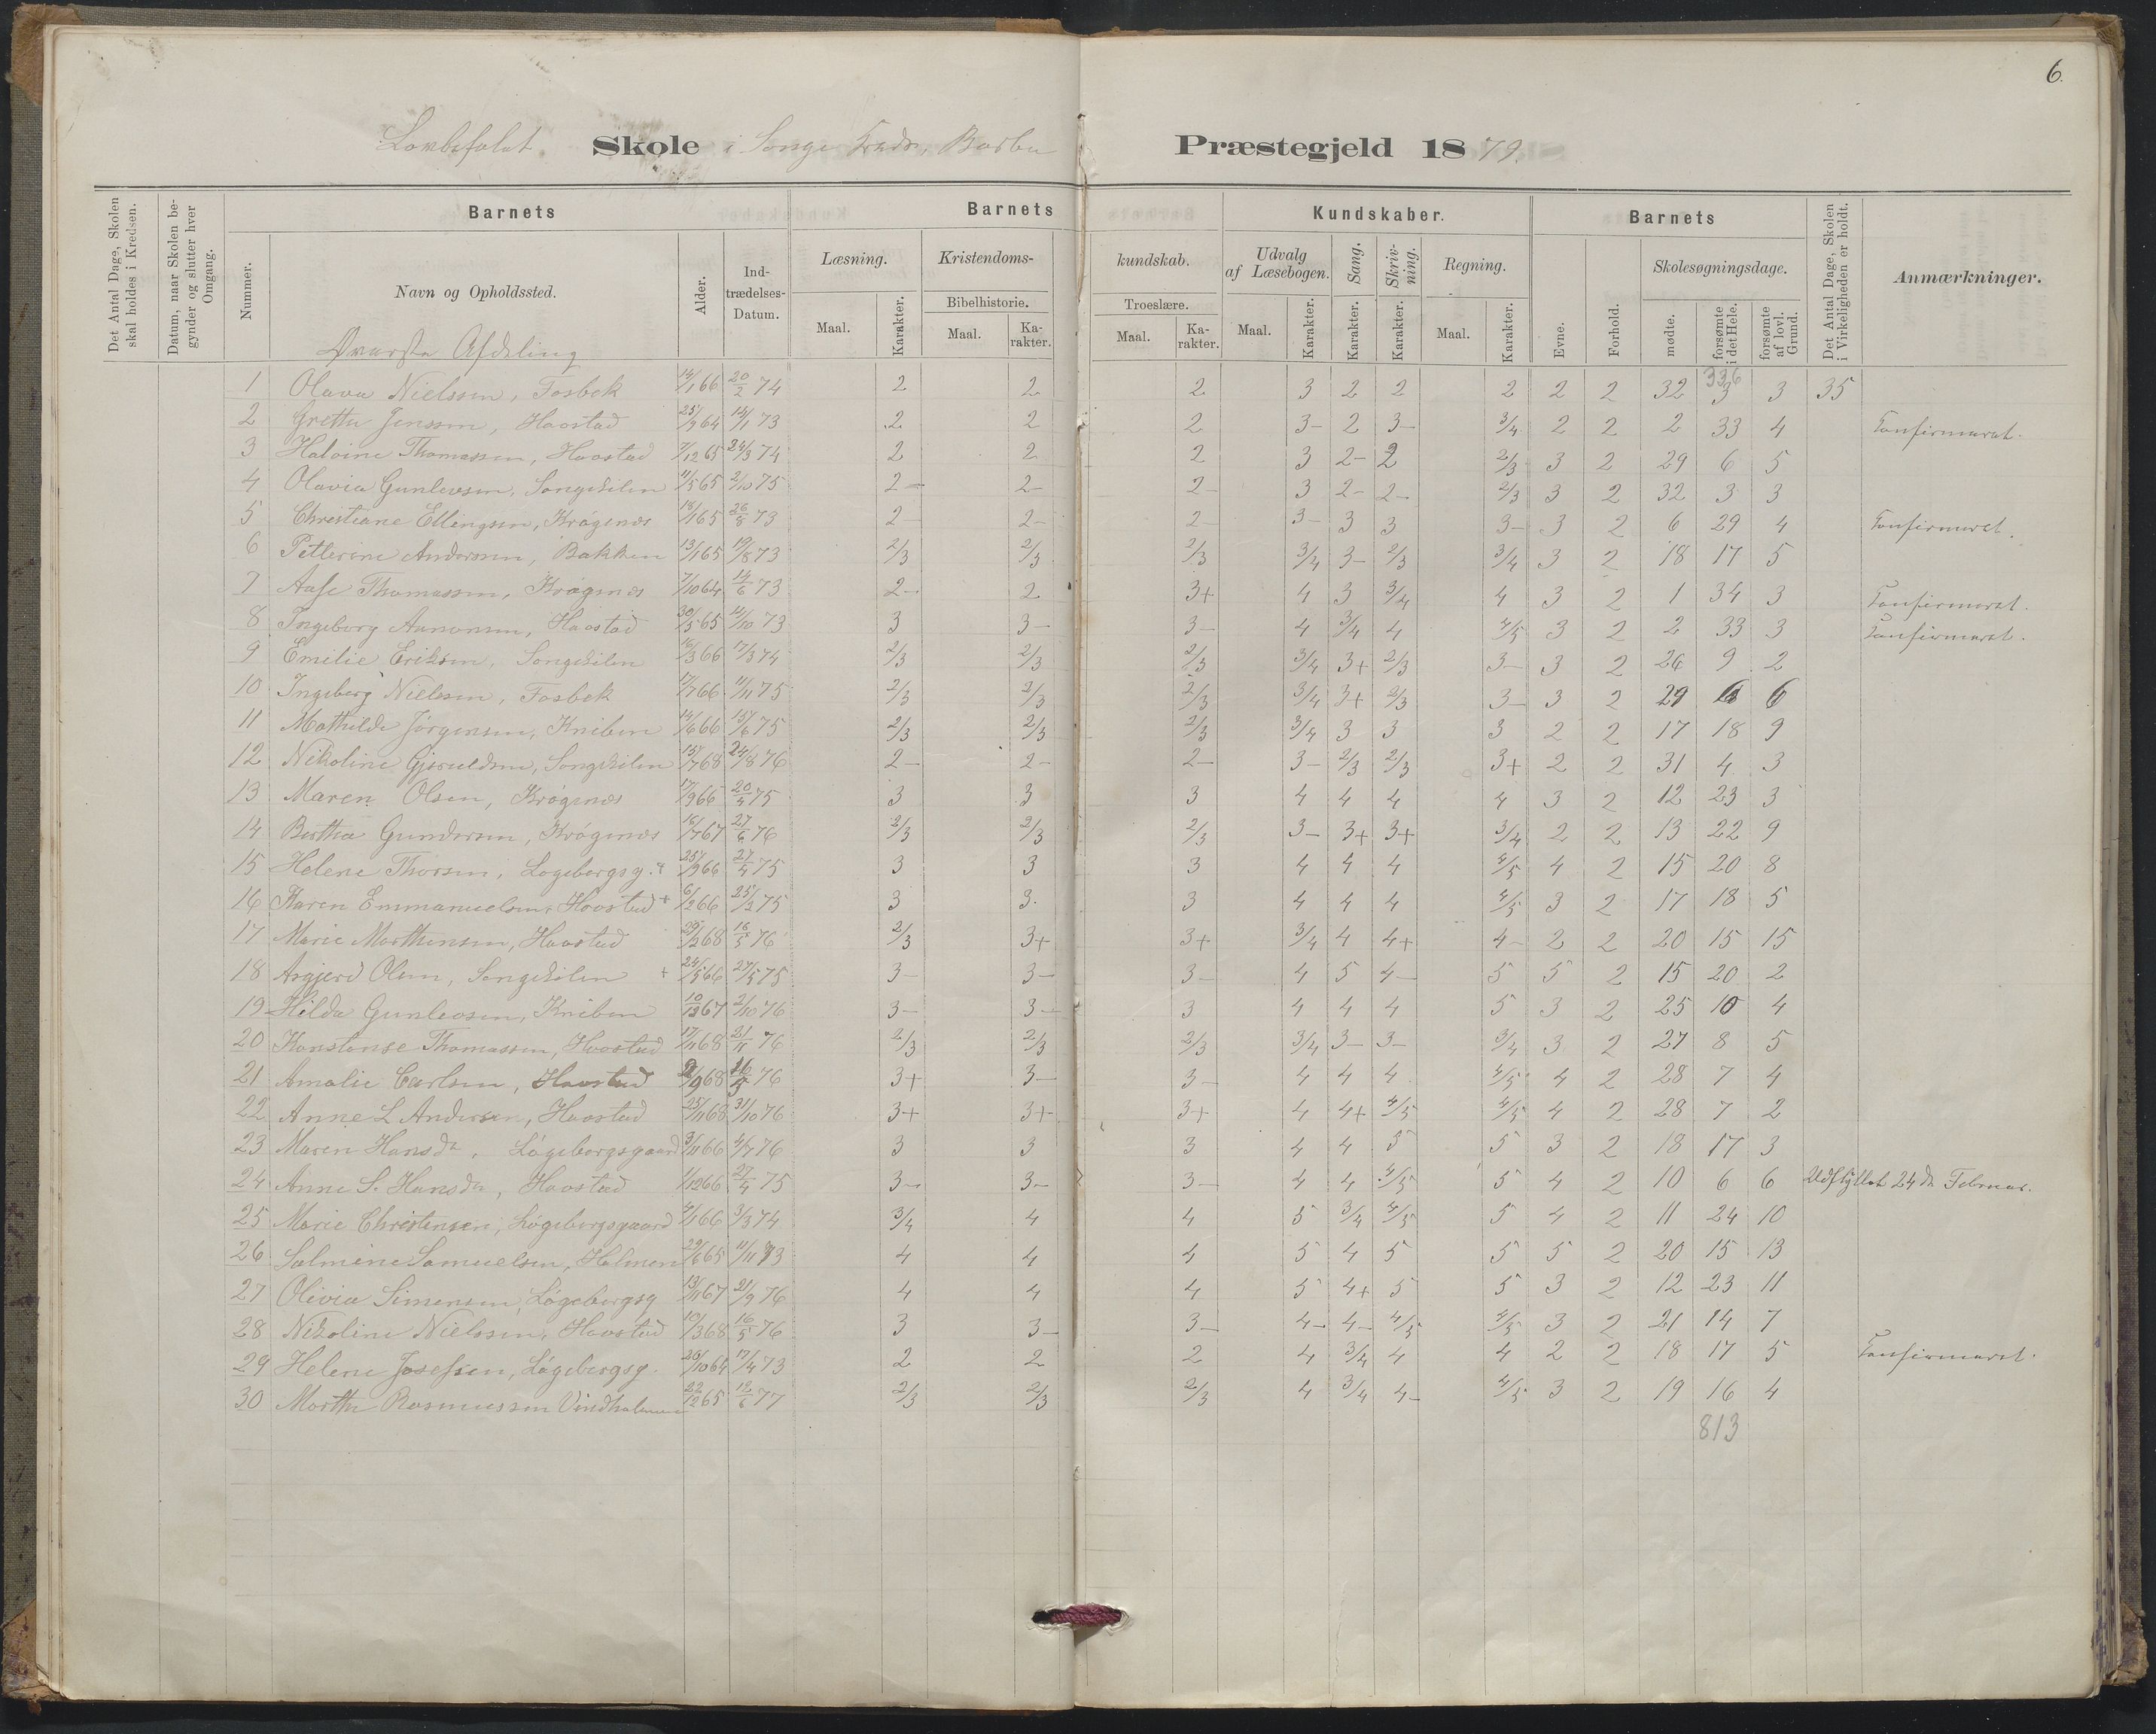 6.
Lovbefalet Skole i Songe Kreds, Barbu Præstegjeld 1879.
Det Antal Dage, Skolen skal holdes i Kredsen.
Datum, naar Skolen begynder og slutter hver Omgang.
Barnets Barnets Kundskaber. Barnets
Nummer. Navn og Opholdssted. Alder. Indtrædelses-Datum. Læsning. Kristendoms- kundskab. Udvalg af Læsebogen. Sang. Skrivning. Regning. Evne. Forhold. Skolesøgningsdage. Det Antal Dage, Skolen i Virkeligheden er holdt. Anmærkninger.
Bibelhistorie. Troeslære.
Maal. Karakter. Maal. Karakter. Maal. Karakter. Maal. Karakter. Karakter. Karakter. Maal. Karakter. mødte. forsømte i det Hele. forsømte af lovl. Grund.
Øverste Afdeling
336
1 Olava Nielssen, Fosbek 14/1 66 20/2 74 2 2 2 3 2 2 2 2 2 32 3 3 35
2 Grethe Jenssen, Havstad 25/9 64 14/1 73 2 2 2 3- 2 3- 3/4 2 2 2 33 4 Konfirmeret.
3 Halvine Thomassen, Havstad 7/12 65 24/3 74 2 2 2 3 2- 2 2/3 3 2 29 6 5
4 Olavia Gunlevsen, Songekilen 11/5 65 2/10 75 2- 2- 2- 3 2- 2- 2/3 3 2 32 3 3
5 Christiane Ellingsen, Krøgenes 18/1 65 26/8 73 2- 2- 2- 3- 3 3 3- 3 2 6 29 4 Konfirmeret.
6 Petterine Anderssen, Bakken 13/1 65 19/8 73 2/3 2/3 2/3 3/4 3- 2/3 3/4 3 2 18 17 5
7 Aase Thomassen, Krøgenes 7/10 64 14/6 73 2- 2 3+ 4 3 3/4 4 3 2 1 34 3 Konfirmeret.
8 Ingeborg Aanonsen, Havstad 30/5 65 11/10 73 3 3- 3- 4 3/4 4 4/5 3 2 2 33 3 Konfirmeret.
9 Emilie Eriksen, Songekilen 16/3 66 17/3 74 2/3 2/3 2/3 3/4 3+ 2/3 3- 3 2 26 9 2
10 Ingeborg Nielssen, Fosbek 17/7 66 11/11 75 2/3 2/3 2/3 3/4 3+ 2/3 3- 3 2 29 6 6
11 Mathilde Jørgensen, Kniben 14/6 66 15/6 75 2/3 2/3 2/3 3/4 3 3 3 2 2 17 18 9
12 Nikoline Gjeruldsen, Songekilen 15/7 68 24/8 76 2- 2- 2- 3- 2/3 2/3 3+ 2 2 31 4 3
13 Maren Olsen, Krøgenes 17/9 66 20/4 75 3 3 3 4 4 4 4 3 2 12 23 3
14 Berthea Gundersen, Krøgenes 16/7 67 27/6 76 2/3 2/3 2/3 3- 3+ 3+ 3/4 2 2 13 22 9
15 Helene Thorsen, Løgebergsg. + 25/9 66 27/4 75 3 3 3 4 4 4 4/5 4 2 15 20 8
16 Karen Emmanuelsen, Havstad + 6/2 66 25/2 75 3 3 3 4 4 4 4/5 3 2 17 18 5
17 Marie Morthensen, Havstad 29/2 68 16/5 76 2/3 3+ 3+ 3/4 4 4+ 4- 2 2 20 15 15
18 Asgjerd Olsen, Songekilen + 24/5 66 27/5 75 3- 3- 3- 4 5 4- 5 5 2 15 20 2
19 Hilda Gunlevsen, Kniben 67 2/10 76 3- 3- 3 4 4 4 5 3 2 25 10 4
20 Konstanse Thomassen, Havstad 17/11 68 21/11 76 2/3 2/3 2/3 3/4 3- 3- 3/4 3 2 27 8 5
21 Amalie Carlsen, Havstad 2/9 68 16/5 76 3+ 3- 3- 4 4 4 4/5 4 2 28 7 4
22 Anne L Andersen, Havstad 25/11 68 31/10 76 3+ 3+ 3+ 4 4+ 4/5 4/5 4 2 28 7 2
23 Maren Hansdr, Løgebergsgaard 3/11 66 4/7 76 3 3 3 4 4 5 5 3 2 18 17 3
24 Anne S. Hansdr, Havstad 1/12 66 27/4 75 3- 3- 3- 4 4 4/5 5 4 2 10 6 6 Udflyttet 24de Februar.
25 Marie Christensen, Løgebergsgaard 4/1 66 3/3 74 3/4 4 4 5 3/4 4/5 5 4 2 11 24 10
26 Salmine Samuelsen, Holmen 29/6 65 11/11 73 4 4 4 5 4 5 5 5 2 20 15 13
27 Olivia Simensen, Løgebergsg 13/11 67 21/9 76 4 4 4 5 4+ 5 5 3 2 12 23 11
28 Nikoline Nielssen, Havstad 10/3 68 16/5 76 3 3- 3- 4- 4- 4/5 4/5 3 2 21 14 7
29 Helene Josefsen, Løgebergsg. 26/10 64 17/4 73 2 2 2 4 3/4 4 4 2 2 18 17 5 Konfirmeret.
30 Morthe Rasmussen Vindholmen 22/12 65 12/6 77 2/3 2/3 2/3 4 3/4 4- 4/5 3 2 19 16 4
813